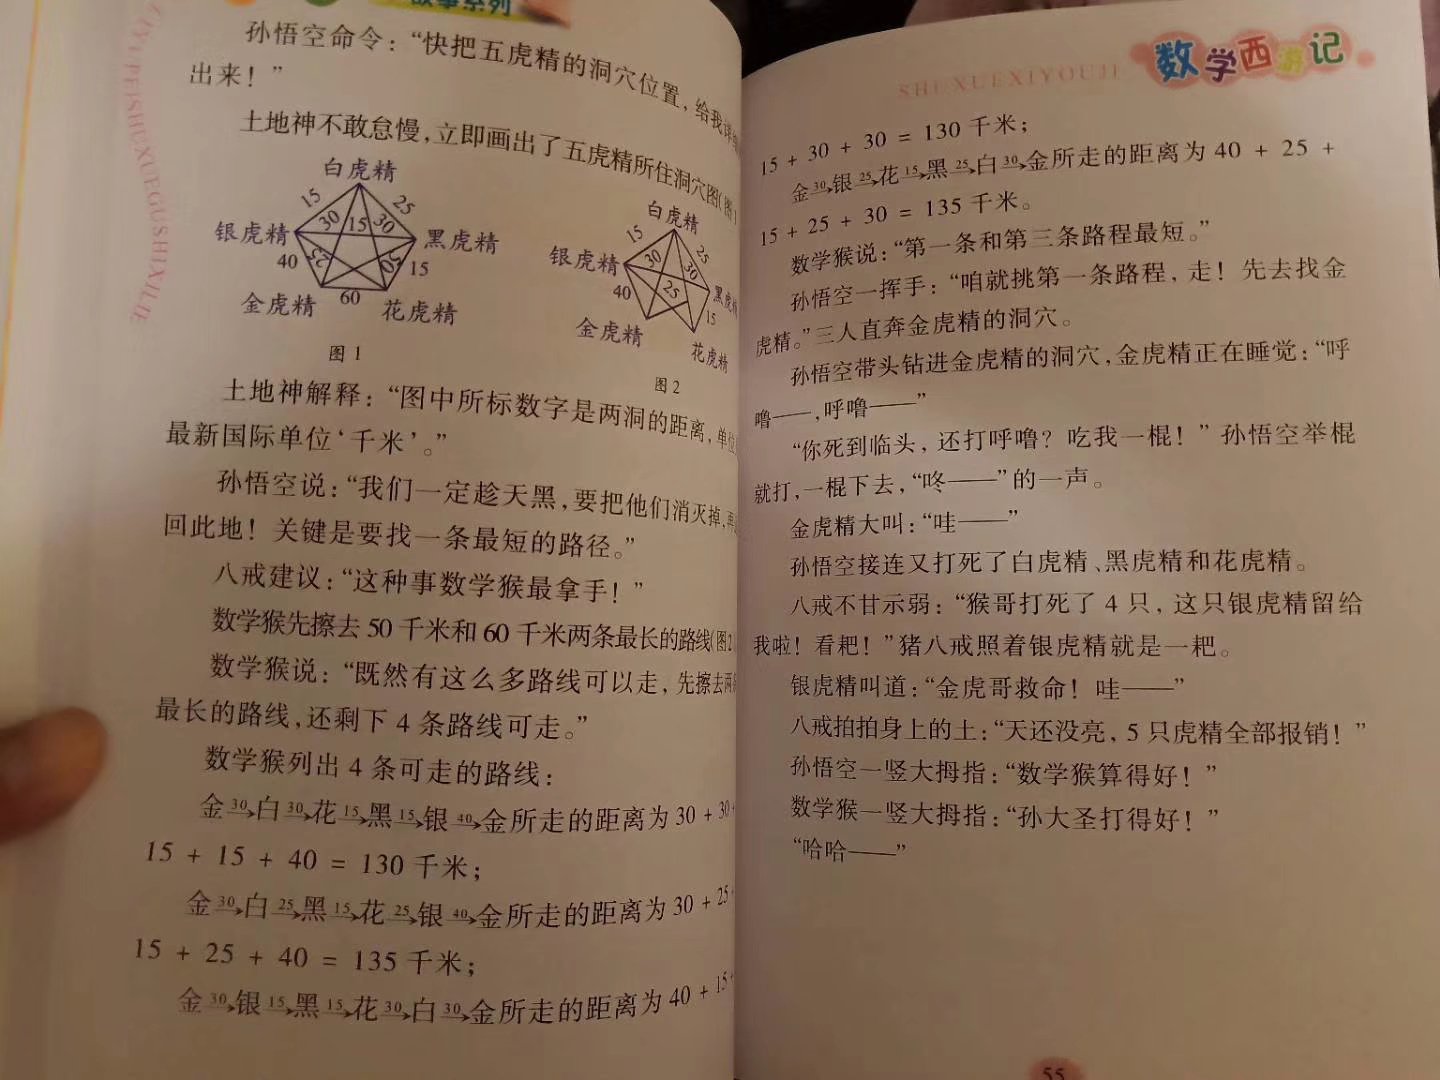 故事系列
LIYUPEISHUXUEGUSHIXILIE
孙悟空命令：“快把五虎精的洞穴位置，给我
出来！”
土地神不敢怠慢，立即画出了五虎精所住洞穴图(图1
白虎精
15
25
30
15
30
银虎精
黑虎精
40
25
50
15
金虎精
60
花虎精
图1
白虎精
15
25
银虎精
30
30
40
25
黑虎
15
金虎精
花虎精
图2
土地神解释：“图中所标数字是两洞的距离，单位
最新国际单位‘千米’。”
孙悟空说：“我们一定趁天黑，要把他们消灭掉，再
回此地！关键是要找一条最短的路径。”
八戒建议：“这种事数学猴最拿手！”
数学猴先擦去50千米和60千米两条最长的路线(图2
数学猴说：“既然有这么多路线可以走，先擦去两
最长的路线，还剩下4条路线可走。”
数学猴列出4条可走的路线：
金30→白30→花15→黑15→银40→金所走的距离为30+30+
15+15+40=130千米；
金30→白25→黑15→花25→银40→金所走的距离为30+25+
15+25+40=135千米；
金30→银15→黑15→花30→白30→金所走的距离为40+15+
SHUXUEXIYOUJI
数学西游记
15+30+30=130千米；
金30→银25→花15→黑25→白30→金所走的距离为40+25+
15+25+30=135千米。
数学猴说：“第一条和第三条路程最短。”
孙悟空一挥手：“咱就挑第一条路程，走！先去找金
虎精。”三人直奔金虎精的洞穴。
孙悟空带头钻进金虎精的洞穴，金虎精正在睡觉：“呼
噜——，呼噜——”
“你死到临头，还打呼噜？吃我一棍！”孙悟空举棍
就打，一棍下去，“咚——”的一声。
金虎精大叫：“哇——”
孙悟空接连又打死了白虎精、黑虎精和花虎精。
八戒不甘示弱：“猴哥打死了4只，这只银虎精留给
我啦！看耙！”猪八戒照着银虎精就是一耙。
银虎精叫道：“金虎哥救命！哇——”
八戒拍拍身上的土：“天还没亮，5只虎精全部报销！”
孙悟空一竖大拇指：“数学猴算得好！”
数学猴一竖大拇指：“孙大圣打得好！”
“哈哈——”
55